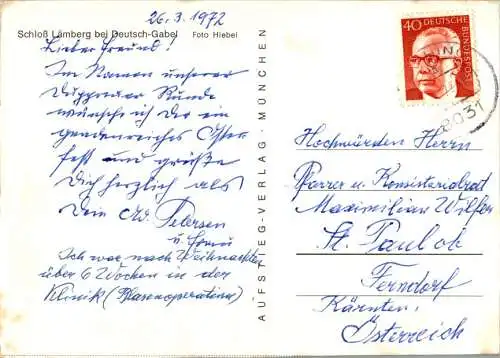 26.3.1972
Schloß Lämberg bei Deutsch-Gabel Foto Hiebel
Lieber Freund!
Im Namen unserer
Duppauer Runde
wünsche ich Dir ein
gnadenreiches Oster-
fest und grüße
Dich herzlich als
Dein Ad. Petersen
u. Frau
Ich war nach Weihnachten
über 6 Wochen in der
Klinik (Blasenoperation)
AUFSTIEG-VERLAG · MÜNCHEN
40 DEUTSCHE BUNDESPOST
8031
Hochwürden Herrn
Pfarrer u. Konsistorialrat
Maximilian
St. Paul ob
Ferndorf
Kärnten,
Österreich